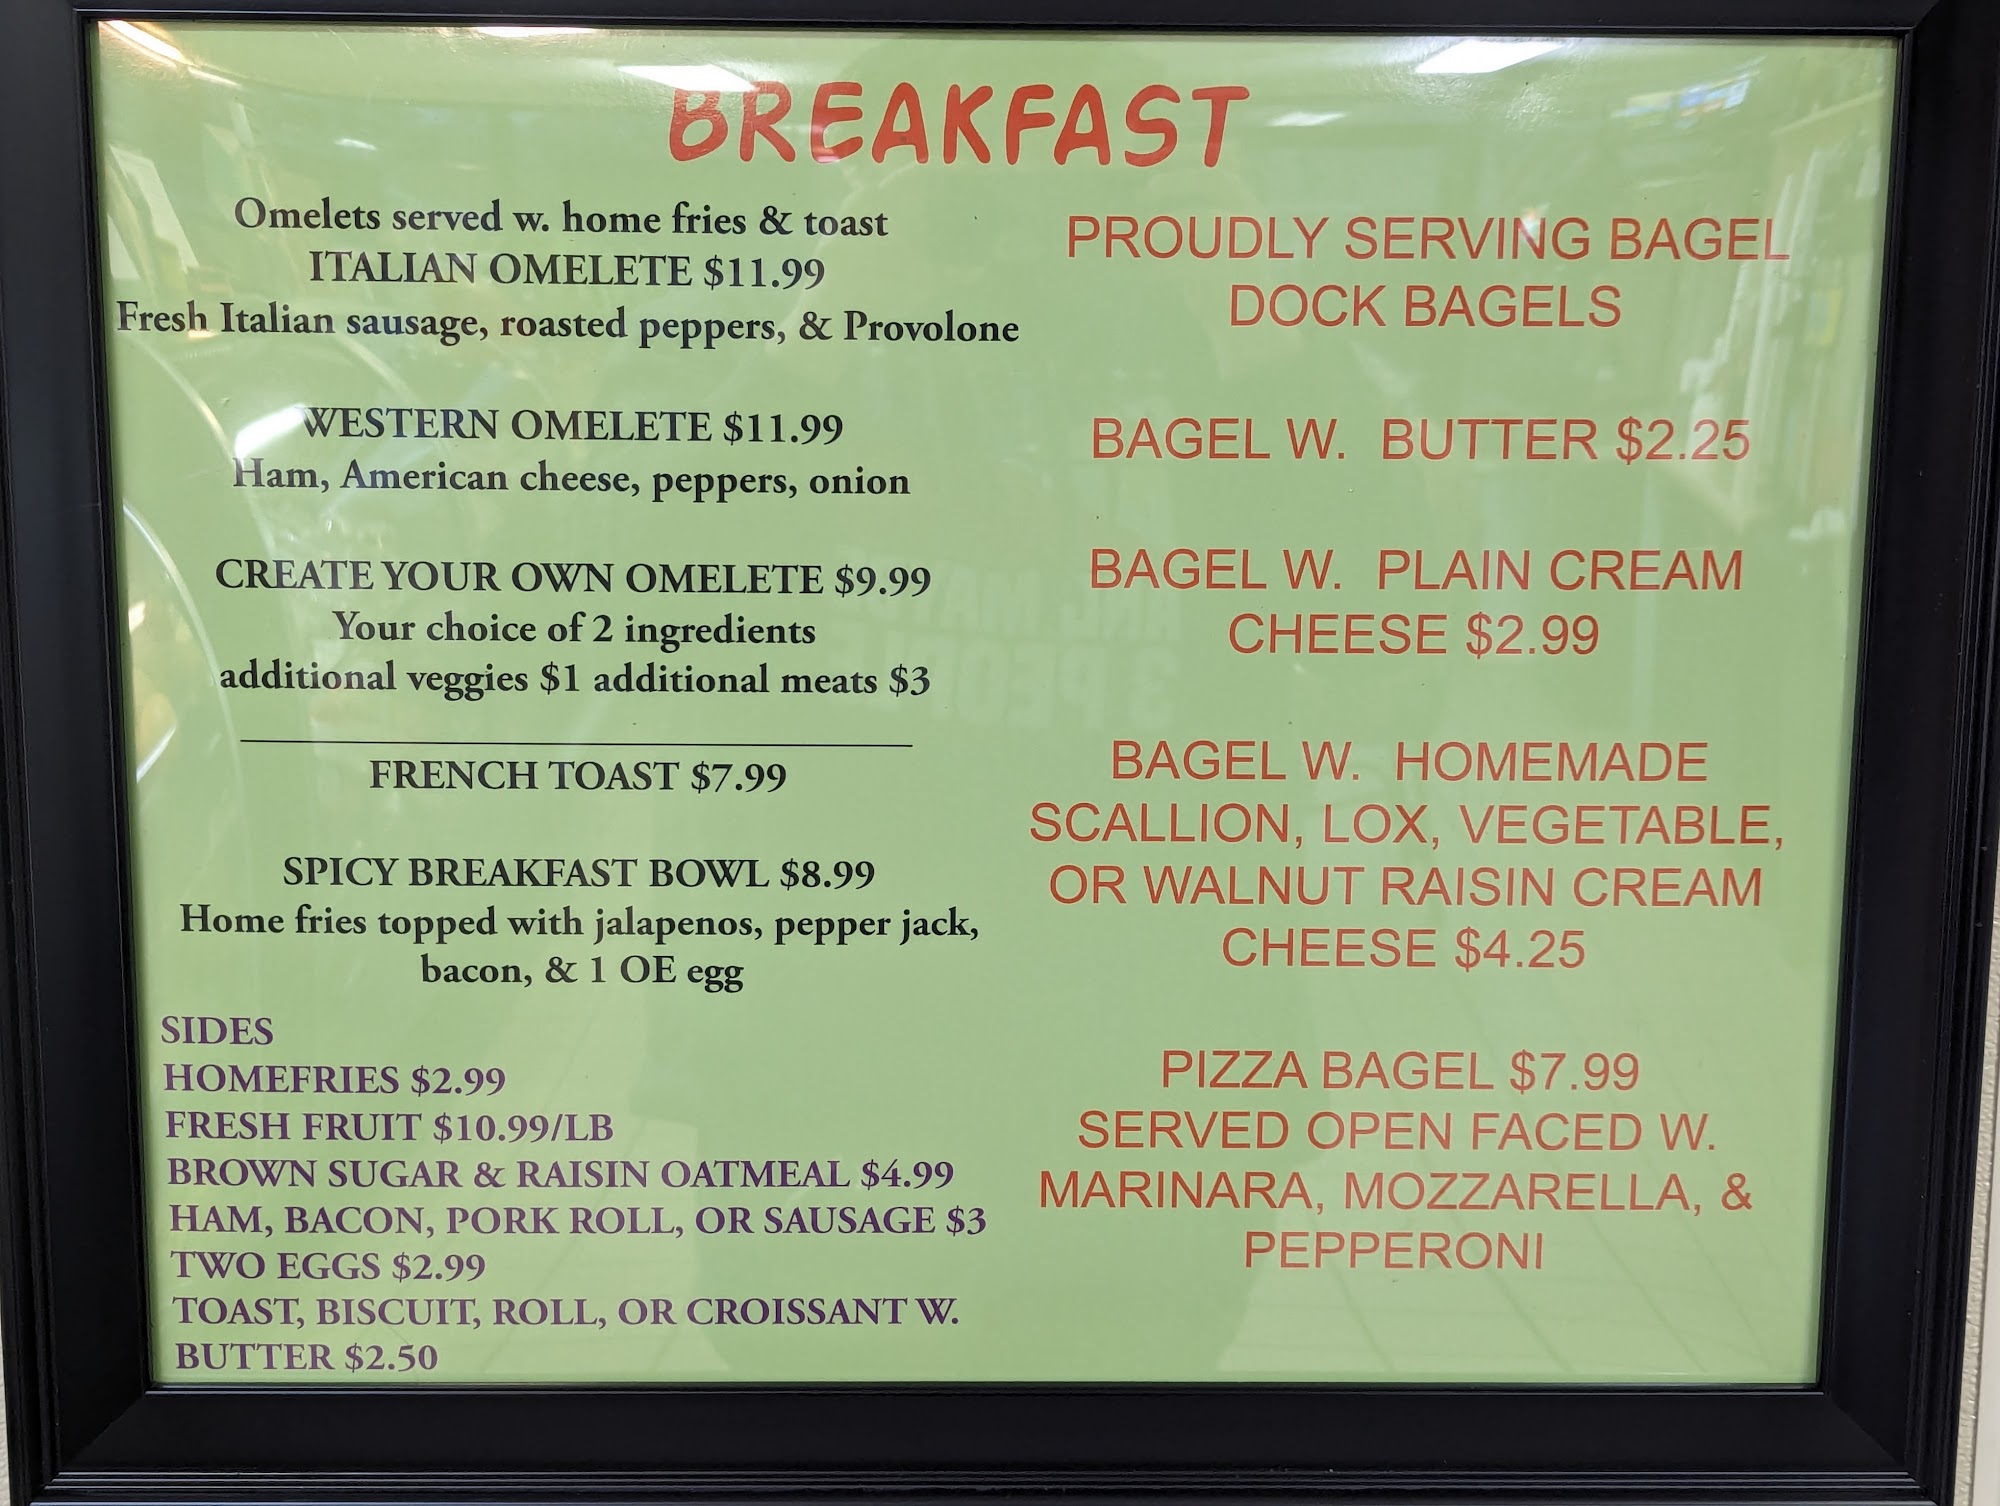 BREAKFAST
Omelets served w. home fries & toast
ITALIAN OMELETE $11.99
Fresh Italian sausage, roasted peppers, & Provolone
WESTERN OMELETE $11.99
Ham, American cheese, peppers, onion
CREATE YOUR OWN OMELETE $9.99
Your choice of 2 ingredients
additional veggies $1 additional meats $3
FRENCH TOAST $7.99
SPICY BREAKFAST BOWL $8.99
Home fries topped with jalapenos, pepper jack,
bacon, & 1 OE egg
SIDES
HOMEFRIES $2.99
FRESH FRUIT $10.99/LB
BROWN SUGAR & RAISIN OATMEAL $4.99
HAM, BACON, PORK ROLL, OR SAUSAGE $3
TWO EGGS $2.99
TOAST, BISCUIT, ROLL, OR CROISSANT W.
BUTTER $2.50
PROUDLY SERVING BAGEL
DOCK BAGELS
BAGEL W. BUTTER $2.25
BAGEL W. PLAIN CREAM
CHEESE $2.99
BAGEL W. HOMEMADE
SCALLION, LOX, VEGETABLE,
OR WALNUT RAISIN CREAM
CHEESE $4.25
PIZZA BAGEL $7.99
SERVED OPEN FACED W.
MARINARA, MOZZARELLA, &
PEPPERONI